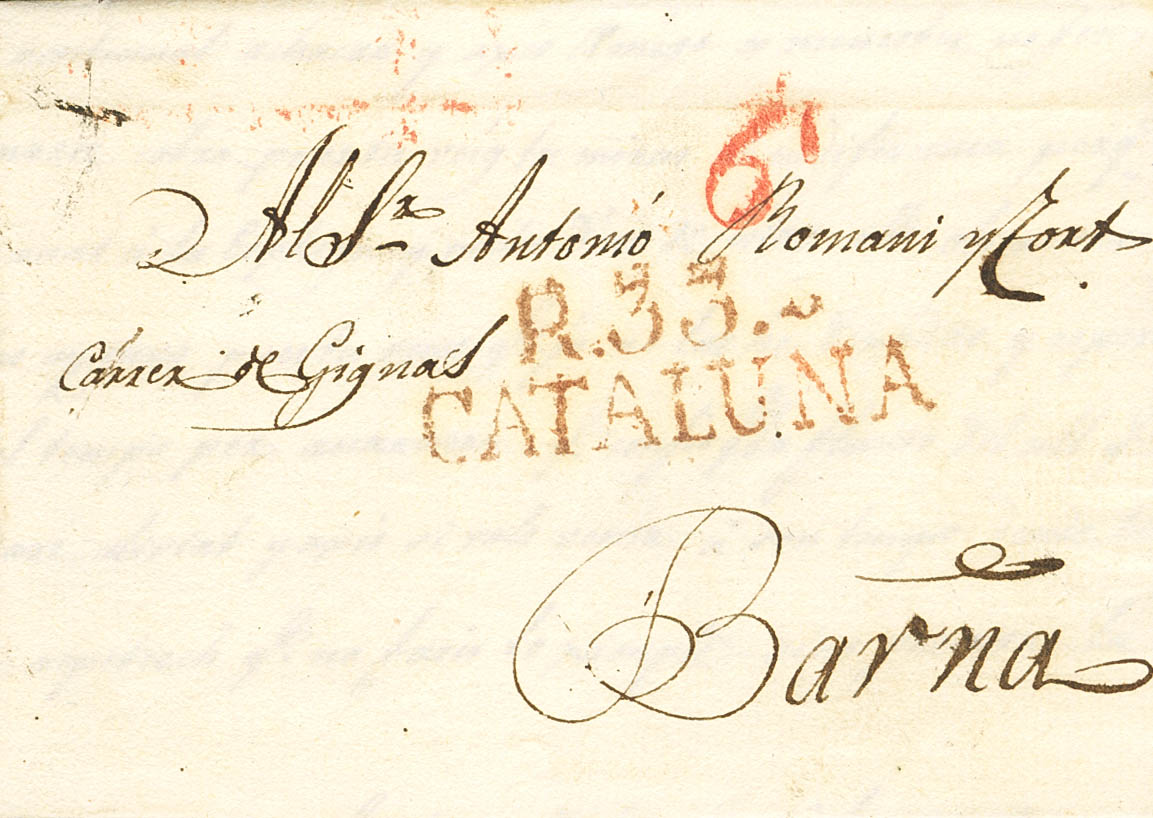 6
Al Sr. Antonió Romani y Tort.
R.33.
CATALUÑA
Cárrer de Gignas
Barna